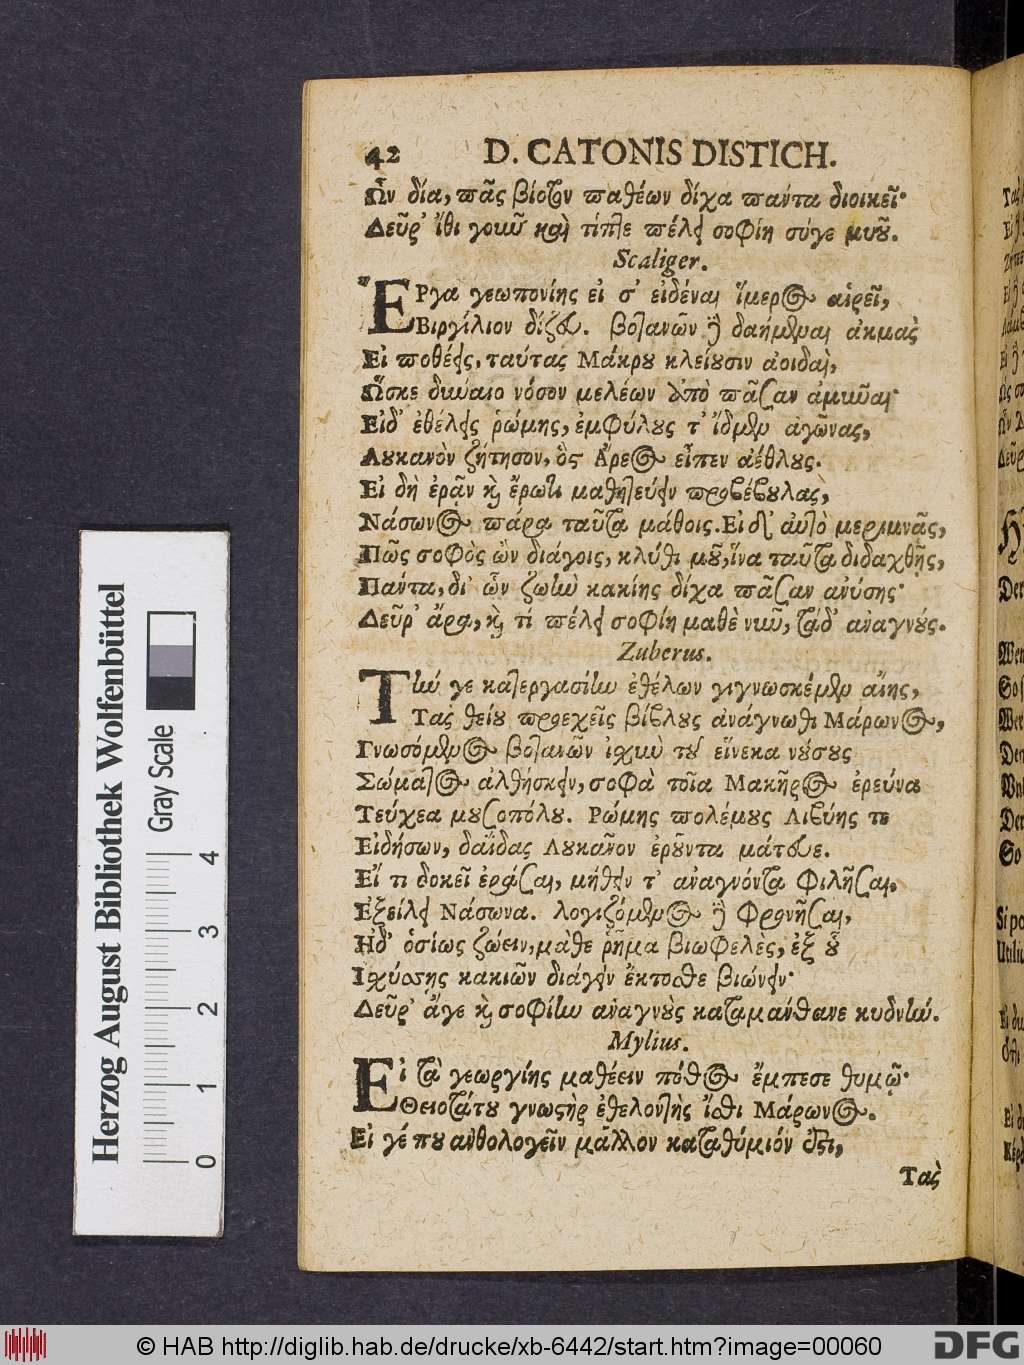 42 D. CATONIS DISTICH.
Ὧν δία, πᾶς βίοτον παθέων δίχα πάντα διοικεῖ·
Δεῦρ' ἴθι γοιῶ καὶ τίπτε πέλει σοφίη σύγε μυοῦ.
Scaliger.
ἜΡγα γεωπονίης εἰ σ' εἰδέναι ἵμερος αἱρεῖ,
Βιργίλιον δίζευ. βοτανῶν δὲ δαήμεναι ἀκμὰς
Εἰ ποθέεις, ταύτας Μάκρου κλείουσιν ἀοιδαὶ,
Ὥσκε δύναιο νόσον μελέων ἀπὸ πᾶσαν ἀμυῦναι·
Εἰδ' ἐθέλεις ῥώμης, ἐμφύλους τ' ἴδμεν ἀγῶνας,
Λουκανὸν ζήτησον, ὃς Ἄρεος εἶπεν ἀέθλους.
Εἰ δὴ ἐρᾷν καὶ ἔρωτι μαθητεύειν προβέβουλας,
Νάσωνος πάρα ταῦτα μάθοις. Εἰ δ' αὐτὸ μεριμνᾷς,
Πῶς σοφὸς ὢν διάγοις, κλύθι μοῦ, ἵνα ταῦτα διδαχθῇς,
Πάντα, δι' ὧν ζωὴν κακίης δίχα πᾶσαν ἀνύσῃς·
Δεῦρ' ἄρα, καὶ τί πέλει σοφίη μαθὲ νῦν, τάδ' ἀναγνούς.
Zuberus.
ΤΗν γε κατεργασίην ἐθέλων γιγνωσκέμεν αἴης,
Τὰς θείου προσεχεῖς βίβλους ἀνάγνωθι Μάρωνος,
Γνωσόμενος βοτανῶν ἰσχὺν τοῦ εἵνεκα νούσους
Σώματος ἀλθήσκειν, σοφὰ τοῖα Μακῆρος ἐρεύνα
Τεύχεα μουσοπόλου. Ῥώμης πολέμους Λιβύης τε
Εἰδήσων, δαΐδας Λουκανὸν ἐροῦντα μάτευε.
Εἴ τι δοκεῖ ἐράσαι, μήθειν τ' ἀναγνόντα φιλῆσαι,
Ἐξείλει Νάσωνα. λογιζόμενος δὲ φρονῆσαι,
Ἠδ' ὁσίως ζώειν, μάθε ῥῆμα βιωφελὲς, ἐξ οὗ
Ἰσχύσῃς κακιῶν διάγειν ἔκτοσθε βιώνειν·
Δεῦρ' ἄγε καὶ σοφίην ἀναγνοὺς καταμάνθανε κυδνήν.
Mylius.
ΕἸ τὰ γεωργίης μαθέειν πόθος ἔμπεσε θυμῷ·
Θειοτάτου γνωστὴρ ἐθελοντὴς ἴσθι Μάρωνος.
Εἰ γέ που ἀνθολογεῖν μᾶλλον καταθύμιόν ἐστι,
Τὰς
Herzog August Bibliothek Wolfenbüttel
Gray Scale
0 1 2 3 4
© HAB http://diglib.hab.de/drucke/xb-6442/start.htm?image=00060
DFG